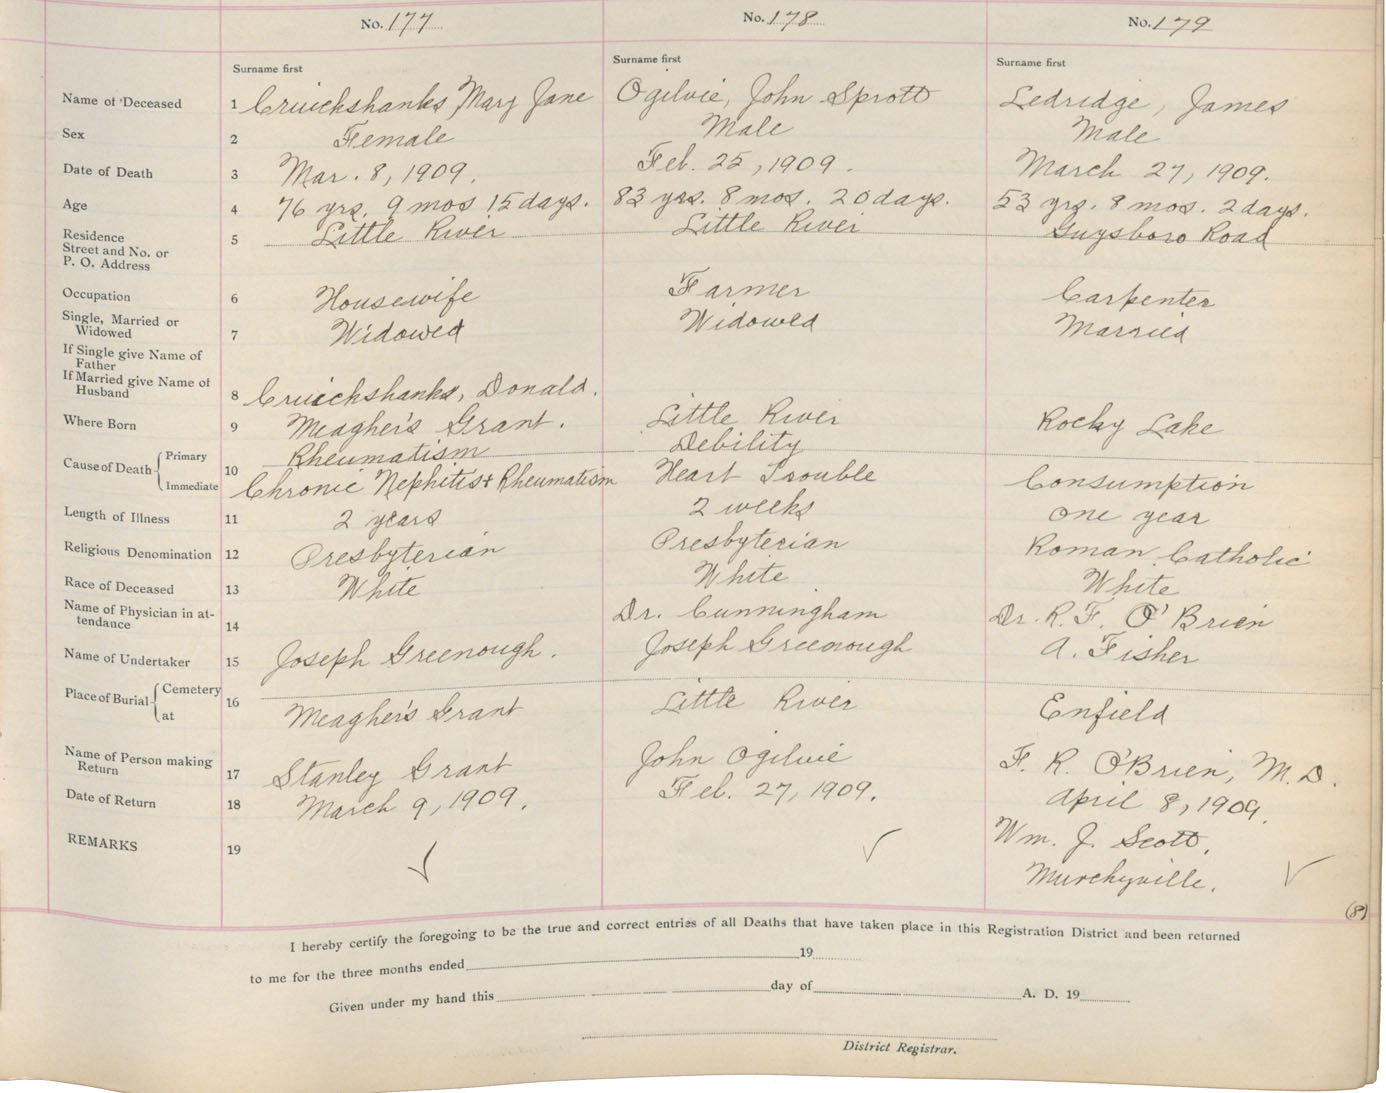 No. 177 No. 178 No. 179
Surname first Surname first Surname first
Name of Deceased 1 Cruickshanks, Mary Jane Ogilvie, John Sprott Ledridge, James
Sex 2 Female Male Male
Date of Death 3 Mar. 8, 1909. Feb. 25, 1909. March 27, 1909.
Age 4 76 yrs. 9 mos 15 days. 83 yrs. 8 mos. 20 days. 53 yrs. 8 mos. 2 days.
Residence 5 Little River Little River Guysboro Road
Street and No. or
P. O. Address
Occupation 6 Housewife Farmer Carpenter
Single, Married or
Widowed 7 Widowed Widowed Married
If Single give Name of
Father
If Married give Name of
Husband 8 Cruickshanks, Donald.
Where Born 9 Meagher's Grant. Little River Rocky Lake
Cause of Death Primary 10 Rheumatism Debility
Immediate Chronic Nephitis + Rheumatism Heart Trouble Consumption
Length of Illness 11 2 years 2 weeks one year
Religious Denomination 12 Presbyterian Presbyterian Roman Catholic
Race of Deceased 13 White White White
Name of Physician in at-
tendance 14 Dr. Cunningham Dr. R. F. O'Brien
Name of Undertaker 15 Joseph Greenough. Joseph Greenough A. Fisher
Place of Burial Cemetery 16
at Meagher's Grant Little River Enfield
Name of Person making
Return 17 Stanley Grant John Ogilvie F. R. O'Brien, M.D.
Date of Return 18 March 9, 1909. Feb. 27, 1909. April 8, 1909.
REMARKS 19 Wm. J. Scott,
Murchyville.
(8)
I hereby certify the foregoing to be the true and correct entries of all Deaths that have taken place in this Registration District and been returned
to me for the three months ended 19
Given under my hand this day of A. D. 19
District Registrar.